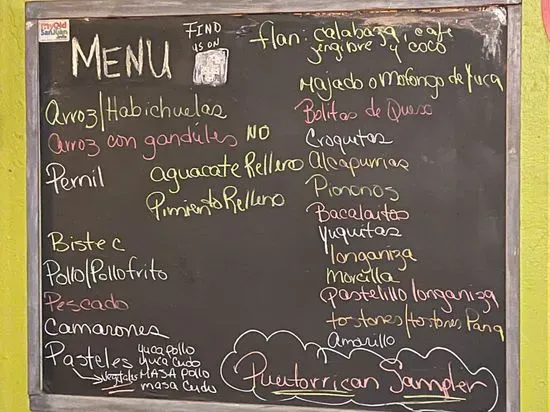 MyOld
SanJuan
MENU
FIND
US ON
flan: calabaza, cafe
jengibre y coco
Majado o Mofongo de Yuca
Arroz/Habichuelas
Arroz con gandúles NO
Pernil
Aguacate Relleno
Pimiento Relleno
Bistec
Pollo/Pollo frito
Pescado
Camarones
Pasteles
Vegetales
yuca pollo
yuca Cerdo
MASA pollo
masa Cerdo
Bolitas de Queso
Croquetas
Alcapurrias
Piononos
Bacalaitos
Yuquitas
longaniza
Morcilla
Pastelillo longaniza
tostones/tostones Pana
Amarillo
Puertorrican Sampler